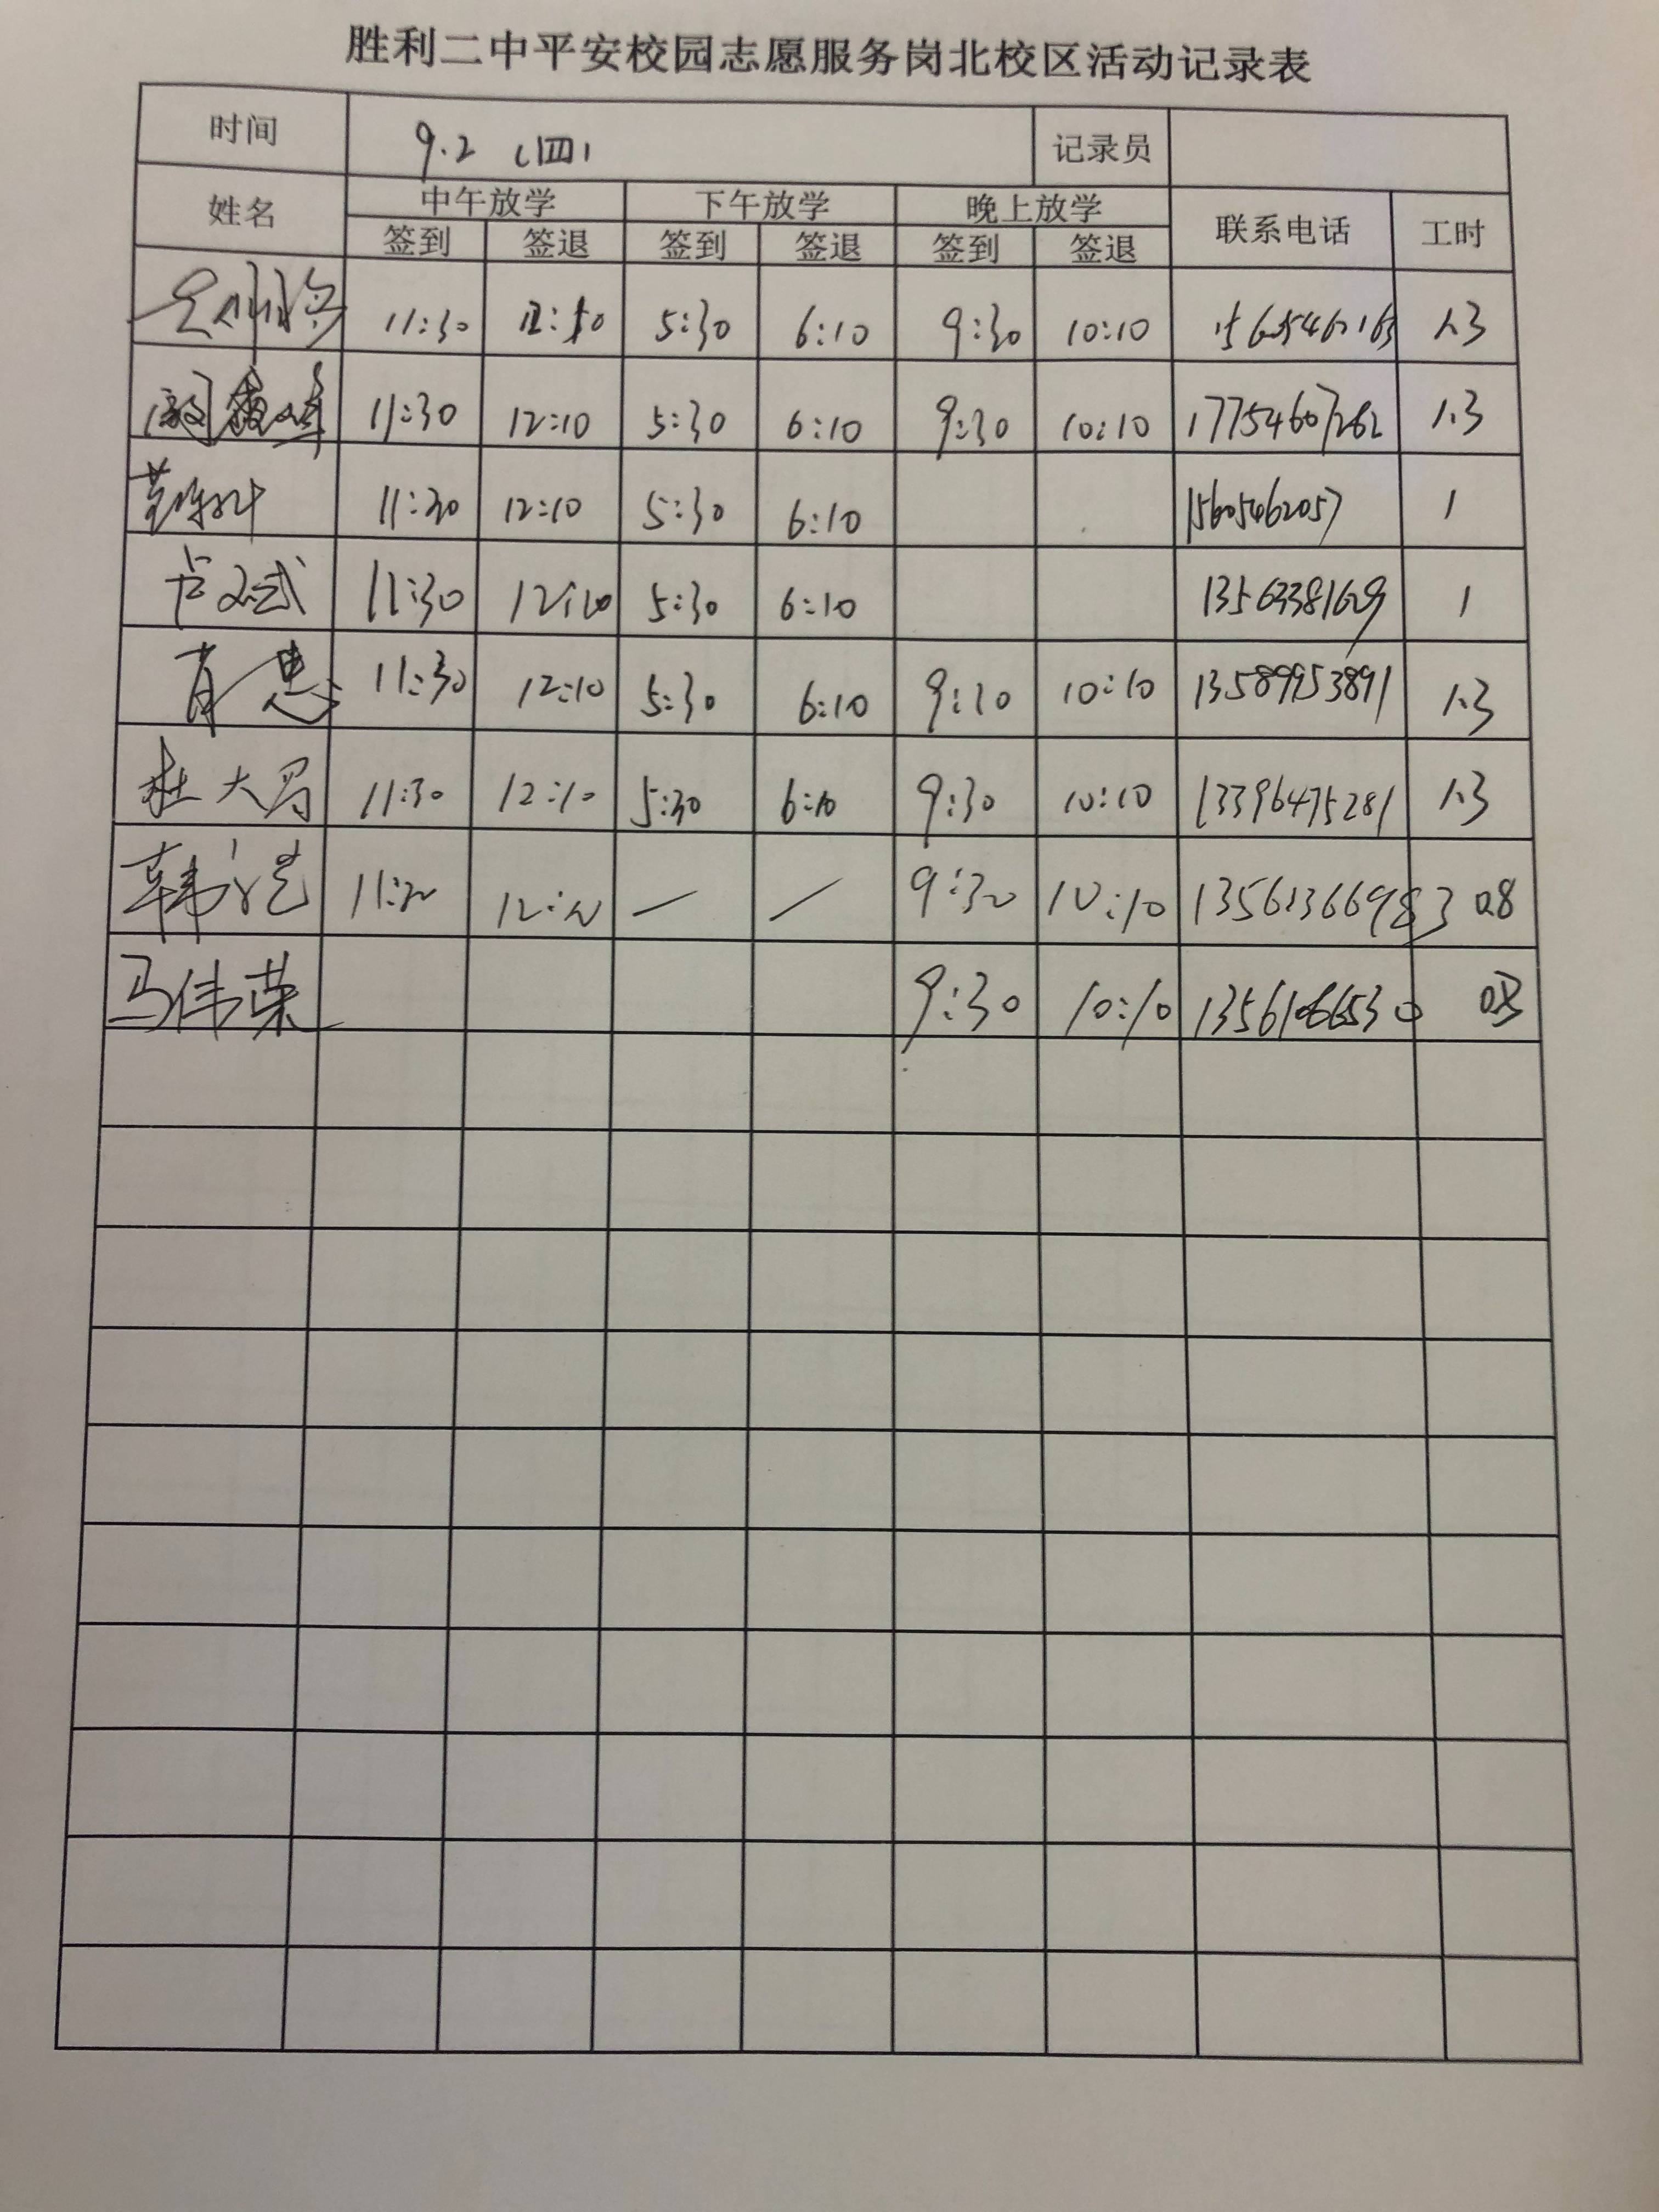 胜利二中平安校园志愿服务岗北校区活动记录表
时间 9.2 (四) 记录员
姓名 中午放学 下午放学 晚上放学 联系电话 工时
签到 签退 签到 签退 签到 签退
11:30 5:30 6:10 9:30 10:10 1.3
11:30 12:10 5:30 6:10 9:30 10:10 17754607262 1.3
11:30 12:10 5:30 6:10 15605462057 1
卢文武 11:30 12:10 5:30 6:10 1
肖惠 11:30 12:10 5:30 6:10 9:30 10:10 13589953891 1.3
杜大 11:30 12:10 5:30 6:10 9:30 10:10 13396475281 1.3
韩 — — 9:30 10:10 13561366983 0.8
马伟荣 9:30 10:10